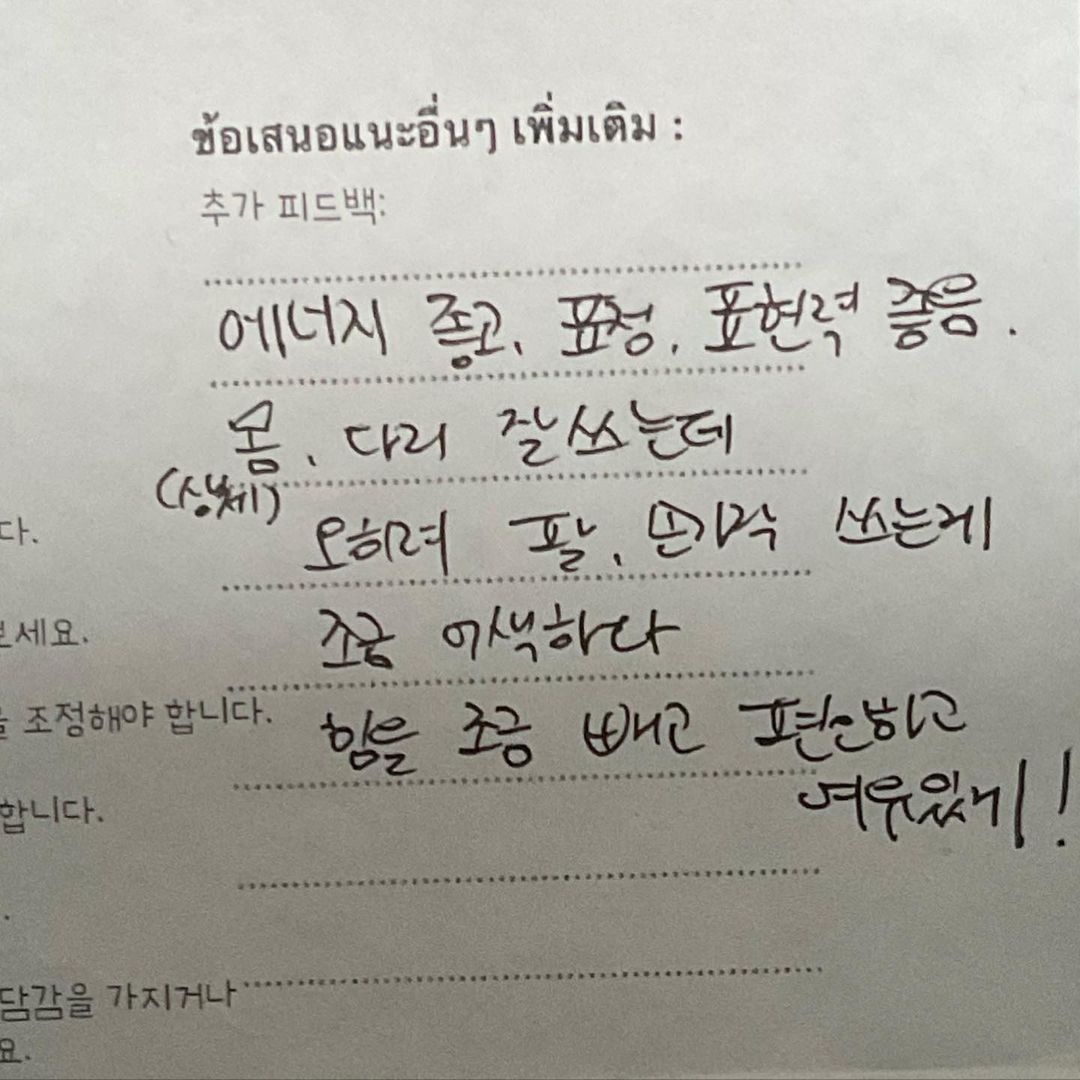 ข้อเสนอแนะอื่นๆ เพิ่มเติม :
추가 피드백:
에너지 좋고, 표정, 표현력 좋음.
몸, 다리 잘쓰는데
(상체)
오히려 팔, 손가락 쓰는게
다.
조금 어색하다
보세요.
힘을 조금 빼고 편안하고
을 조정해야 합니다.
여유있게!
합니다.
담감을 가지거나
요.